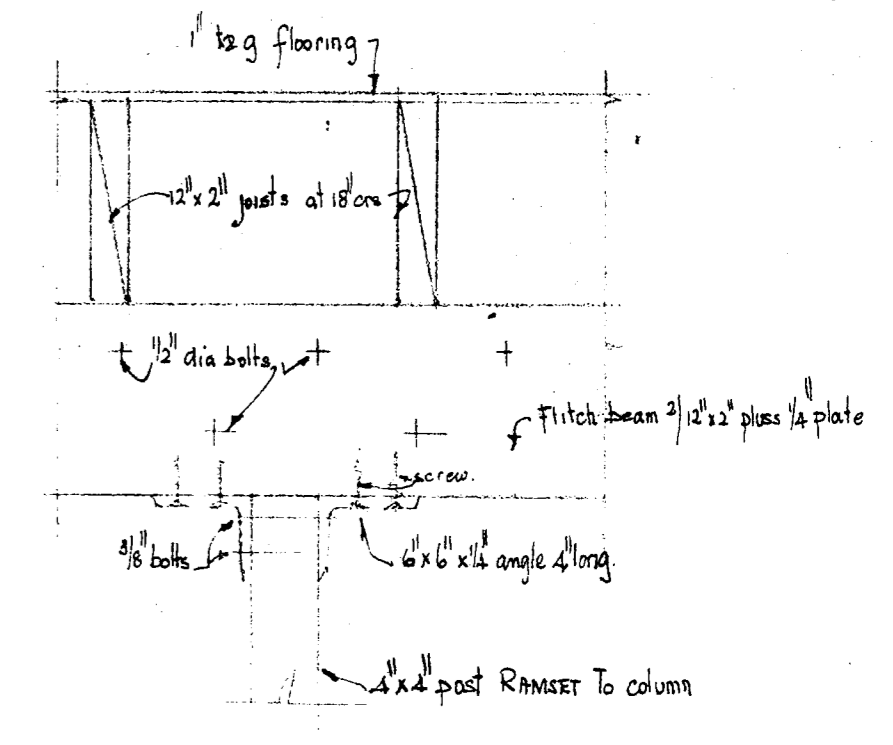 1" t&g flooring
12" x 2" joists at 18" crs
1/2" dia bolts
Flitch beam 2/12" x 2" pluss 1/4" plate
screw.
3/8" bolts
6" x 6" x 1/4" angle 4" long.
4" x 4" post RAMSET To column